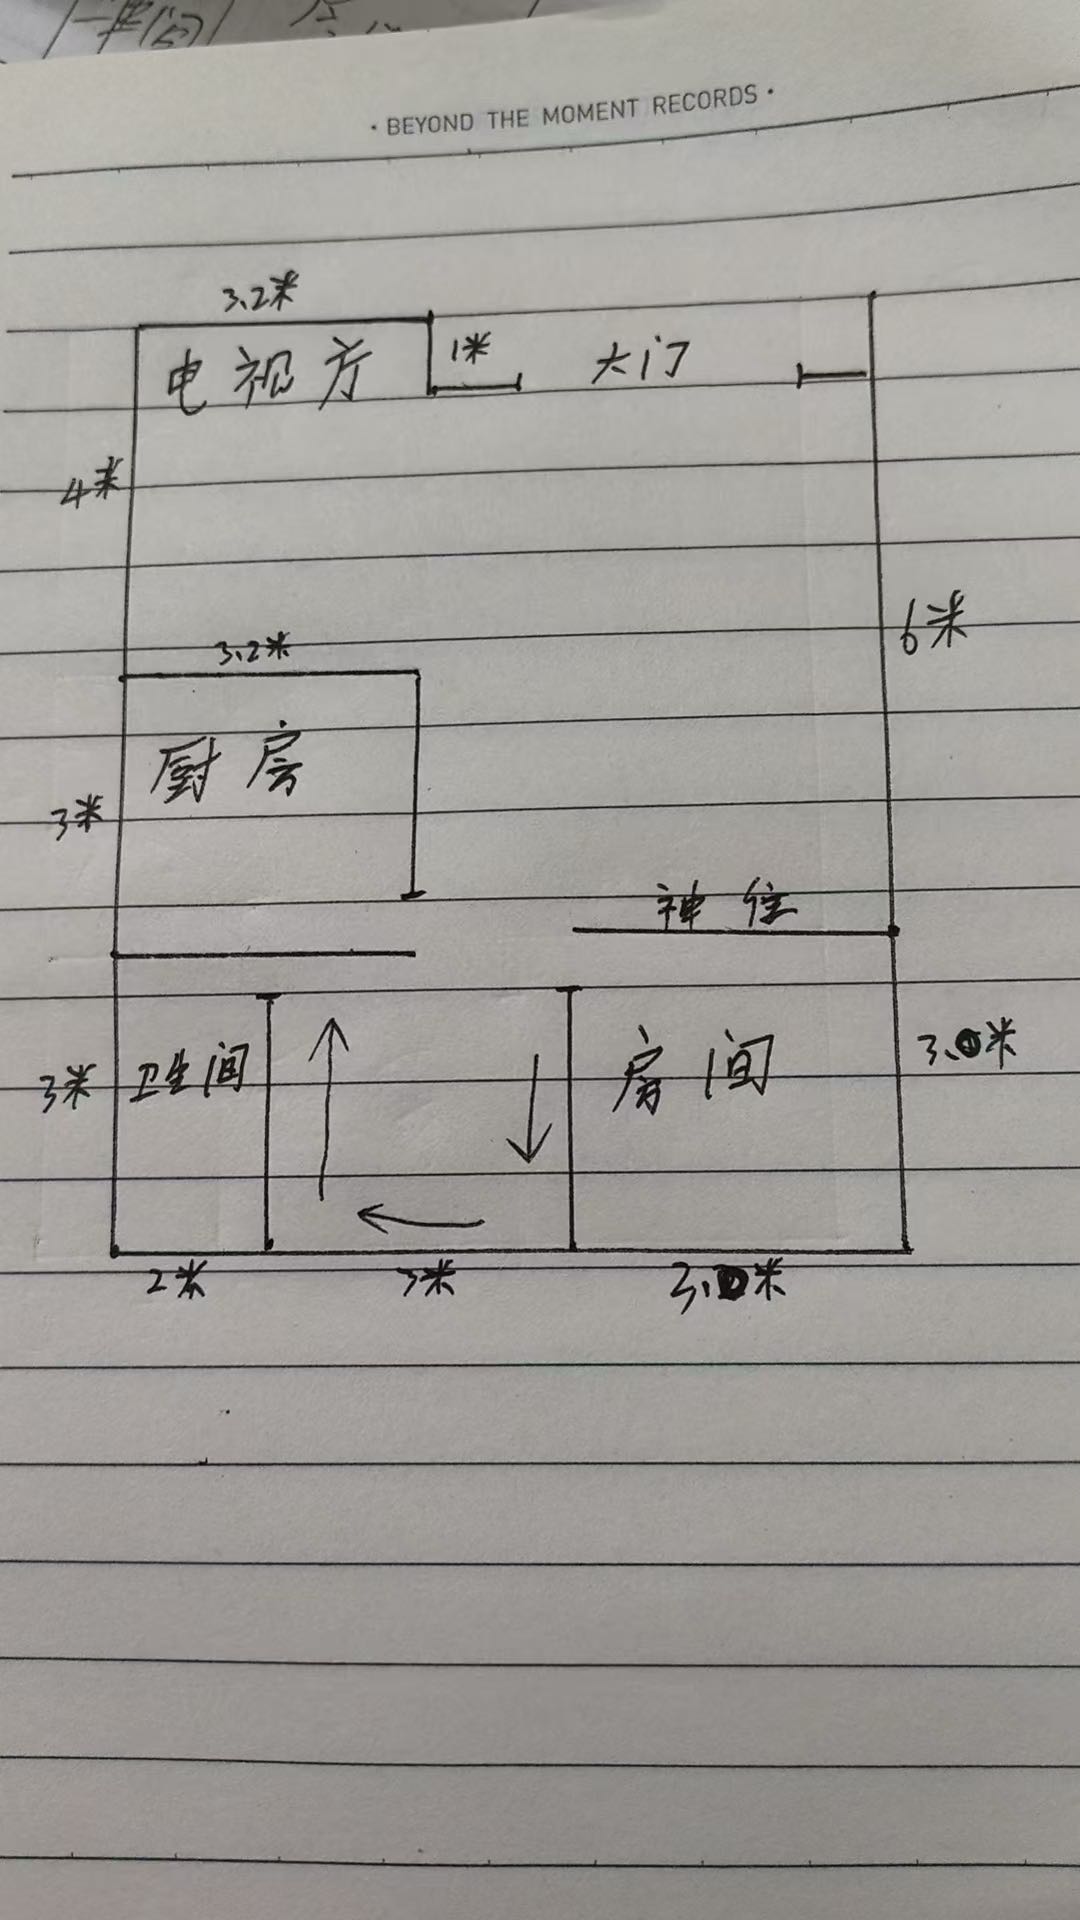 · BEYOND THE MOMENT RECORDS ·
3.2米
电视厅
1米
大门
4米
6米
3.2米
厨房
3米
神位
3米
卫生间
房间
3.0米
2米
3米
3.0米